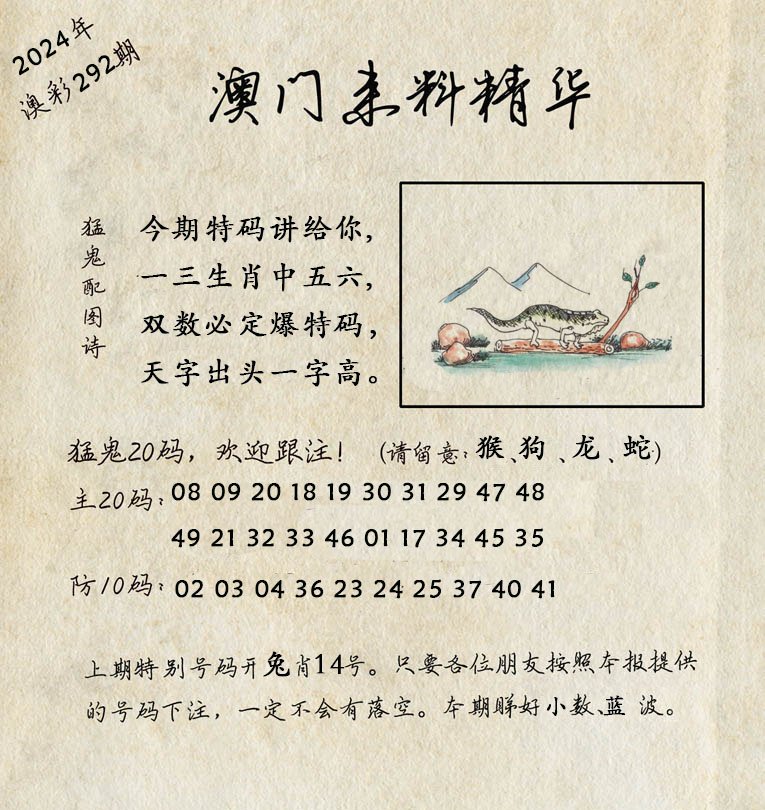 2024年
澳彩292期
澳门来料精华
猛鬼配图诗
今期特码讲给你，
一三生肖中五六，
双数必定爆特码，
天字出头一字高。
猛鬼20码，欢迎跟注！（请留意：猴、狗、龙、蛇）
主20码：08 09 20 18 19 30 31 29 47 48
49 21 32 33 46 01 17 34 45 35
防10码：02 03 04 36 23 24 25 37 40 41
上期特别号码开兔肖14号。只要各位朋友按照本报提供
的号码下注，一定不会有落空。本期睇好小数、蓝 波。